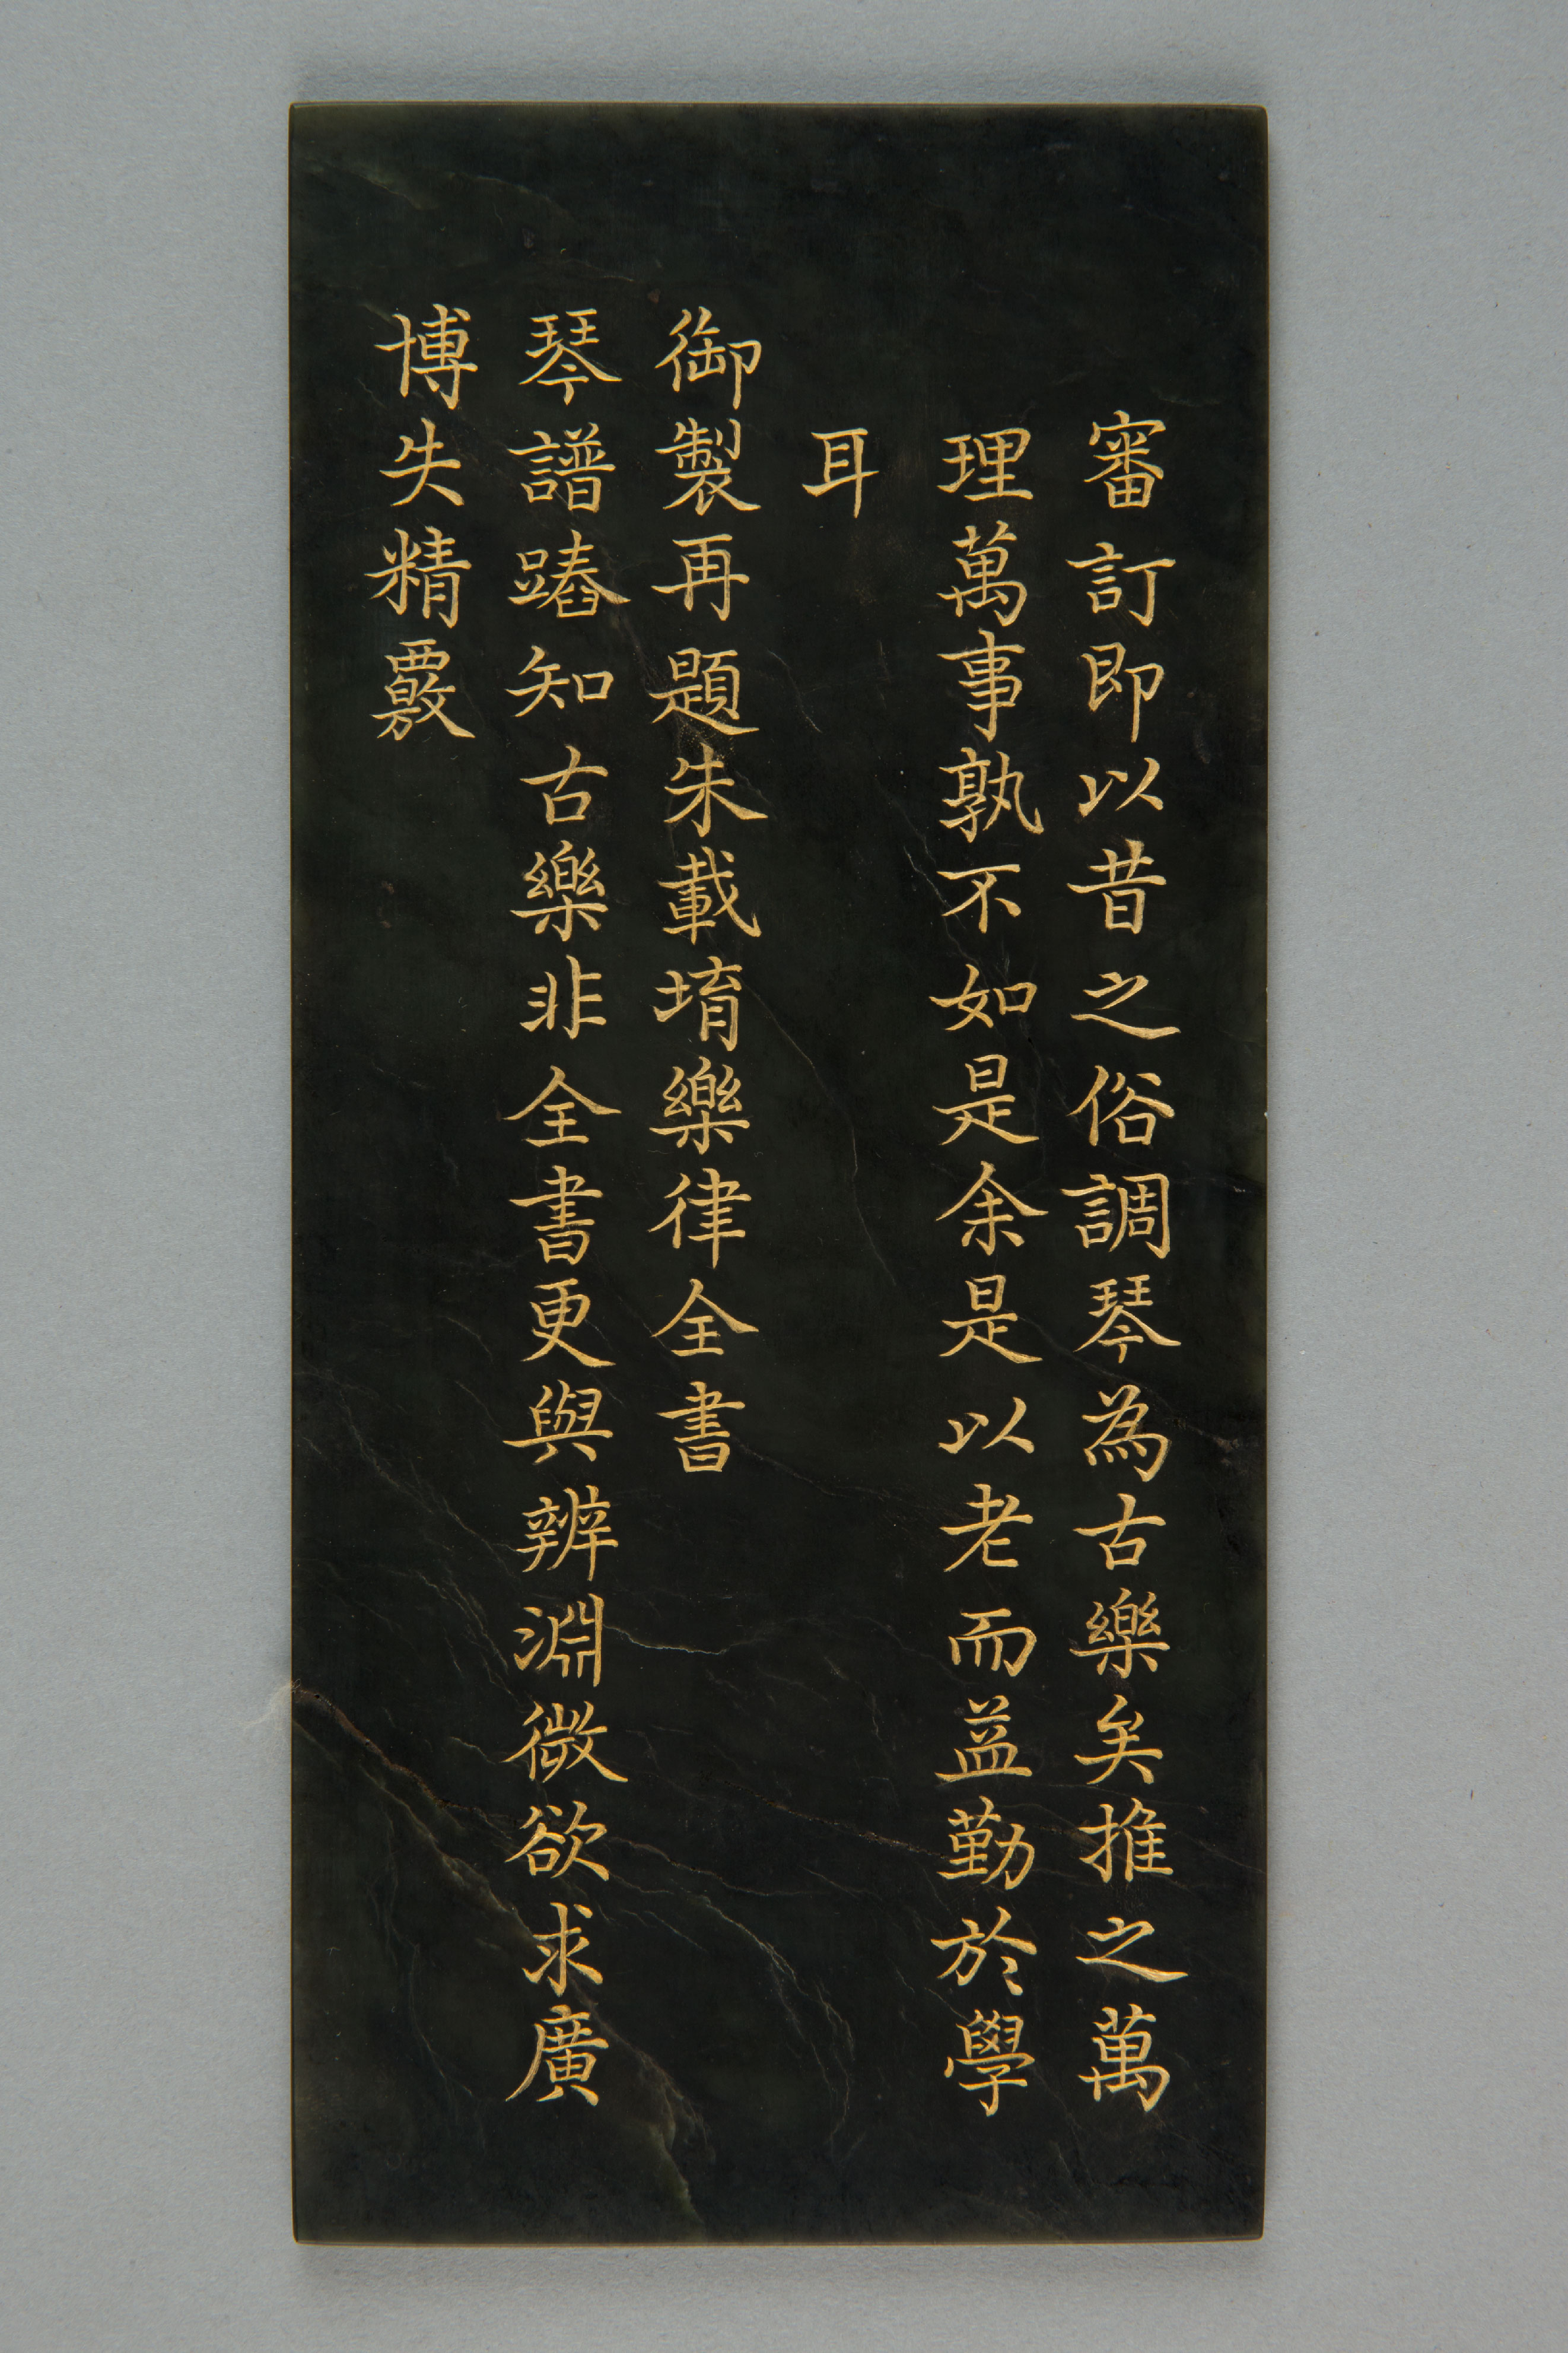 審訂即以昔之俗調琴為古樂矣推之萬
理萬事孰不如是余是以老而益勤於學
耳
御製再題朱載堉樂律全書
琴譜蹖知古樂非全書更與辨淵微欲求廣
博失精覈